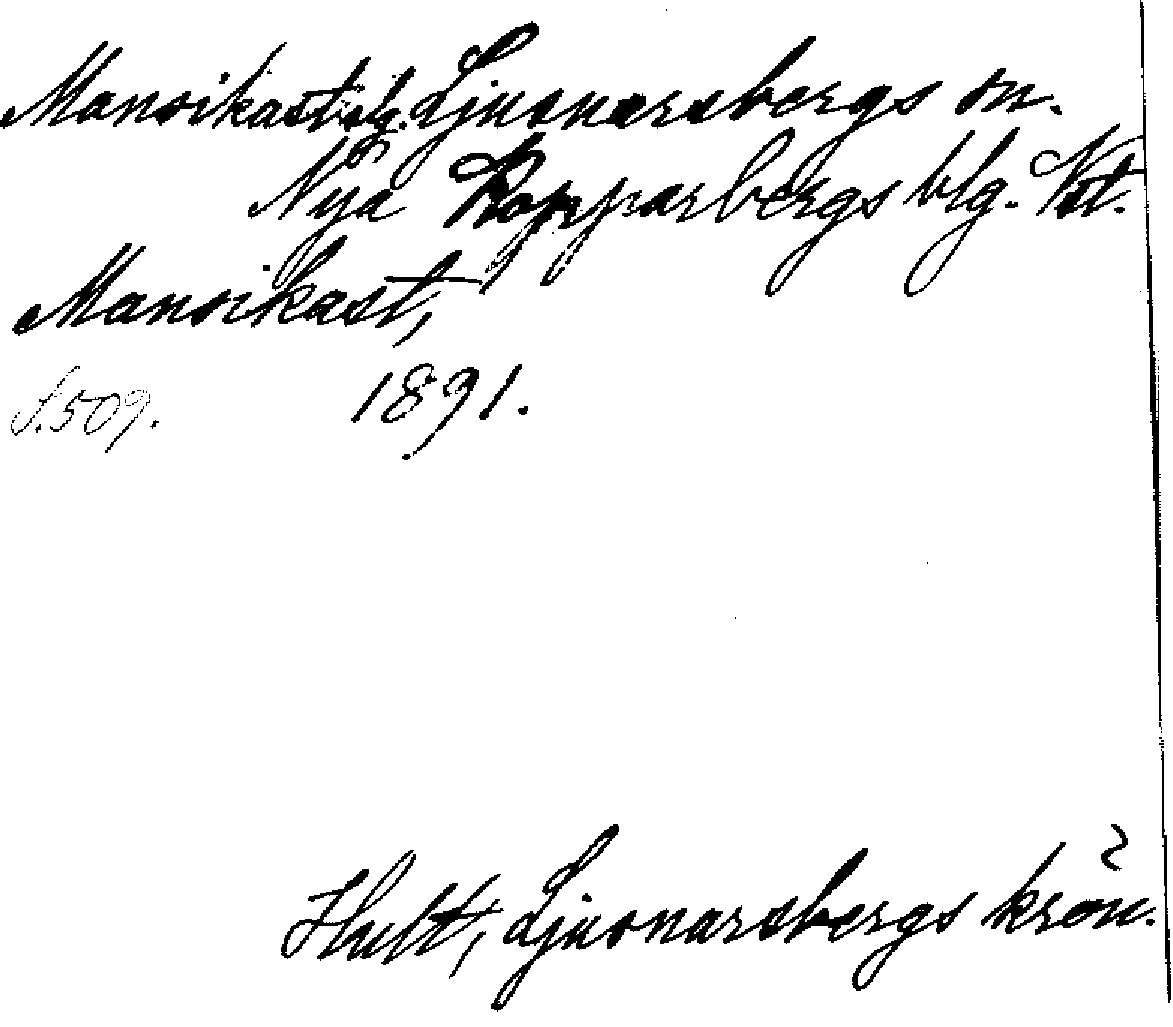 Mansikast, lg. Ljusnarsbergs sn.
Nya Kopparbergs blg. Vst.
Mansikast,
S. 509. 1891.
Hult, Ljusnarsbergs krön.